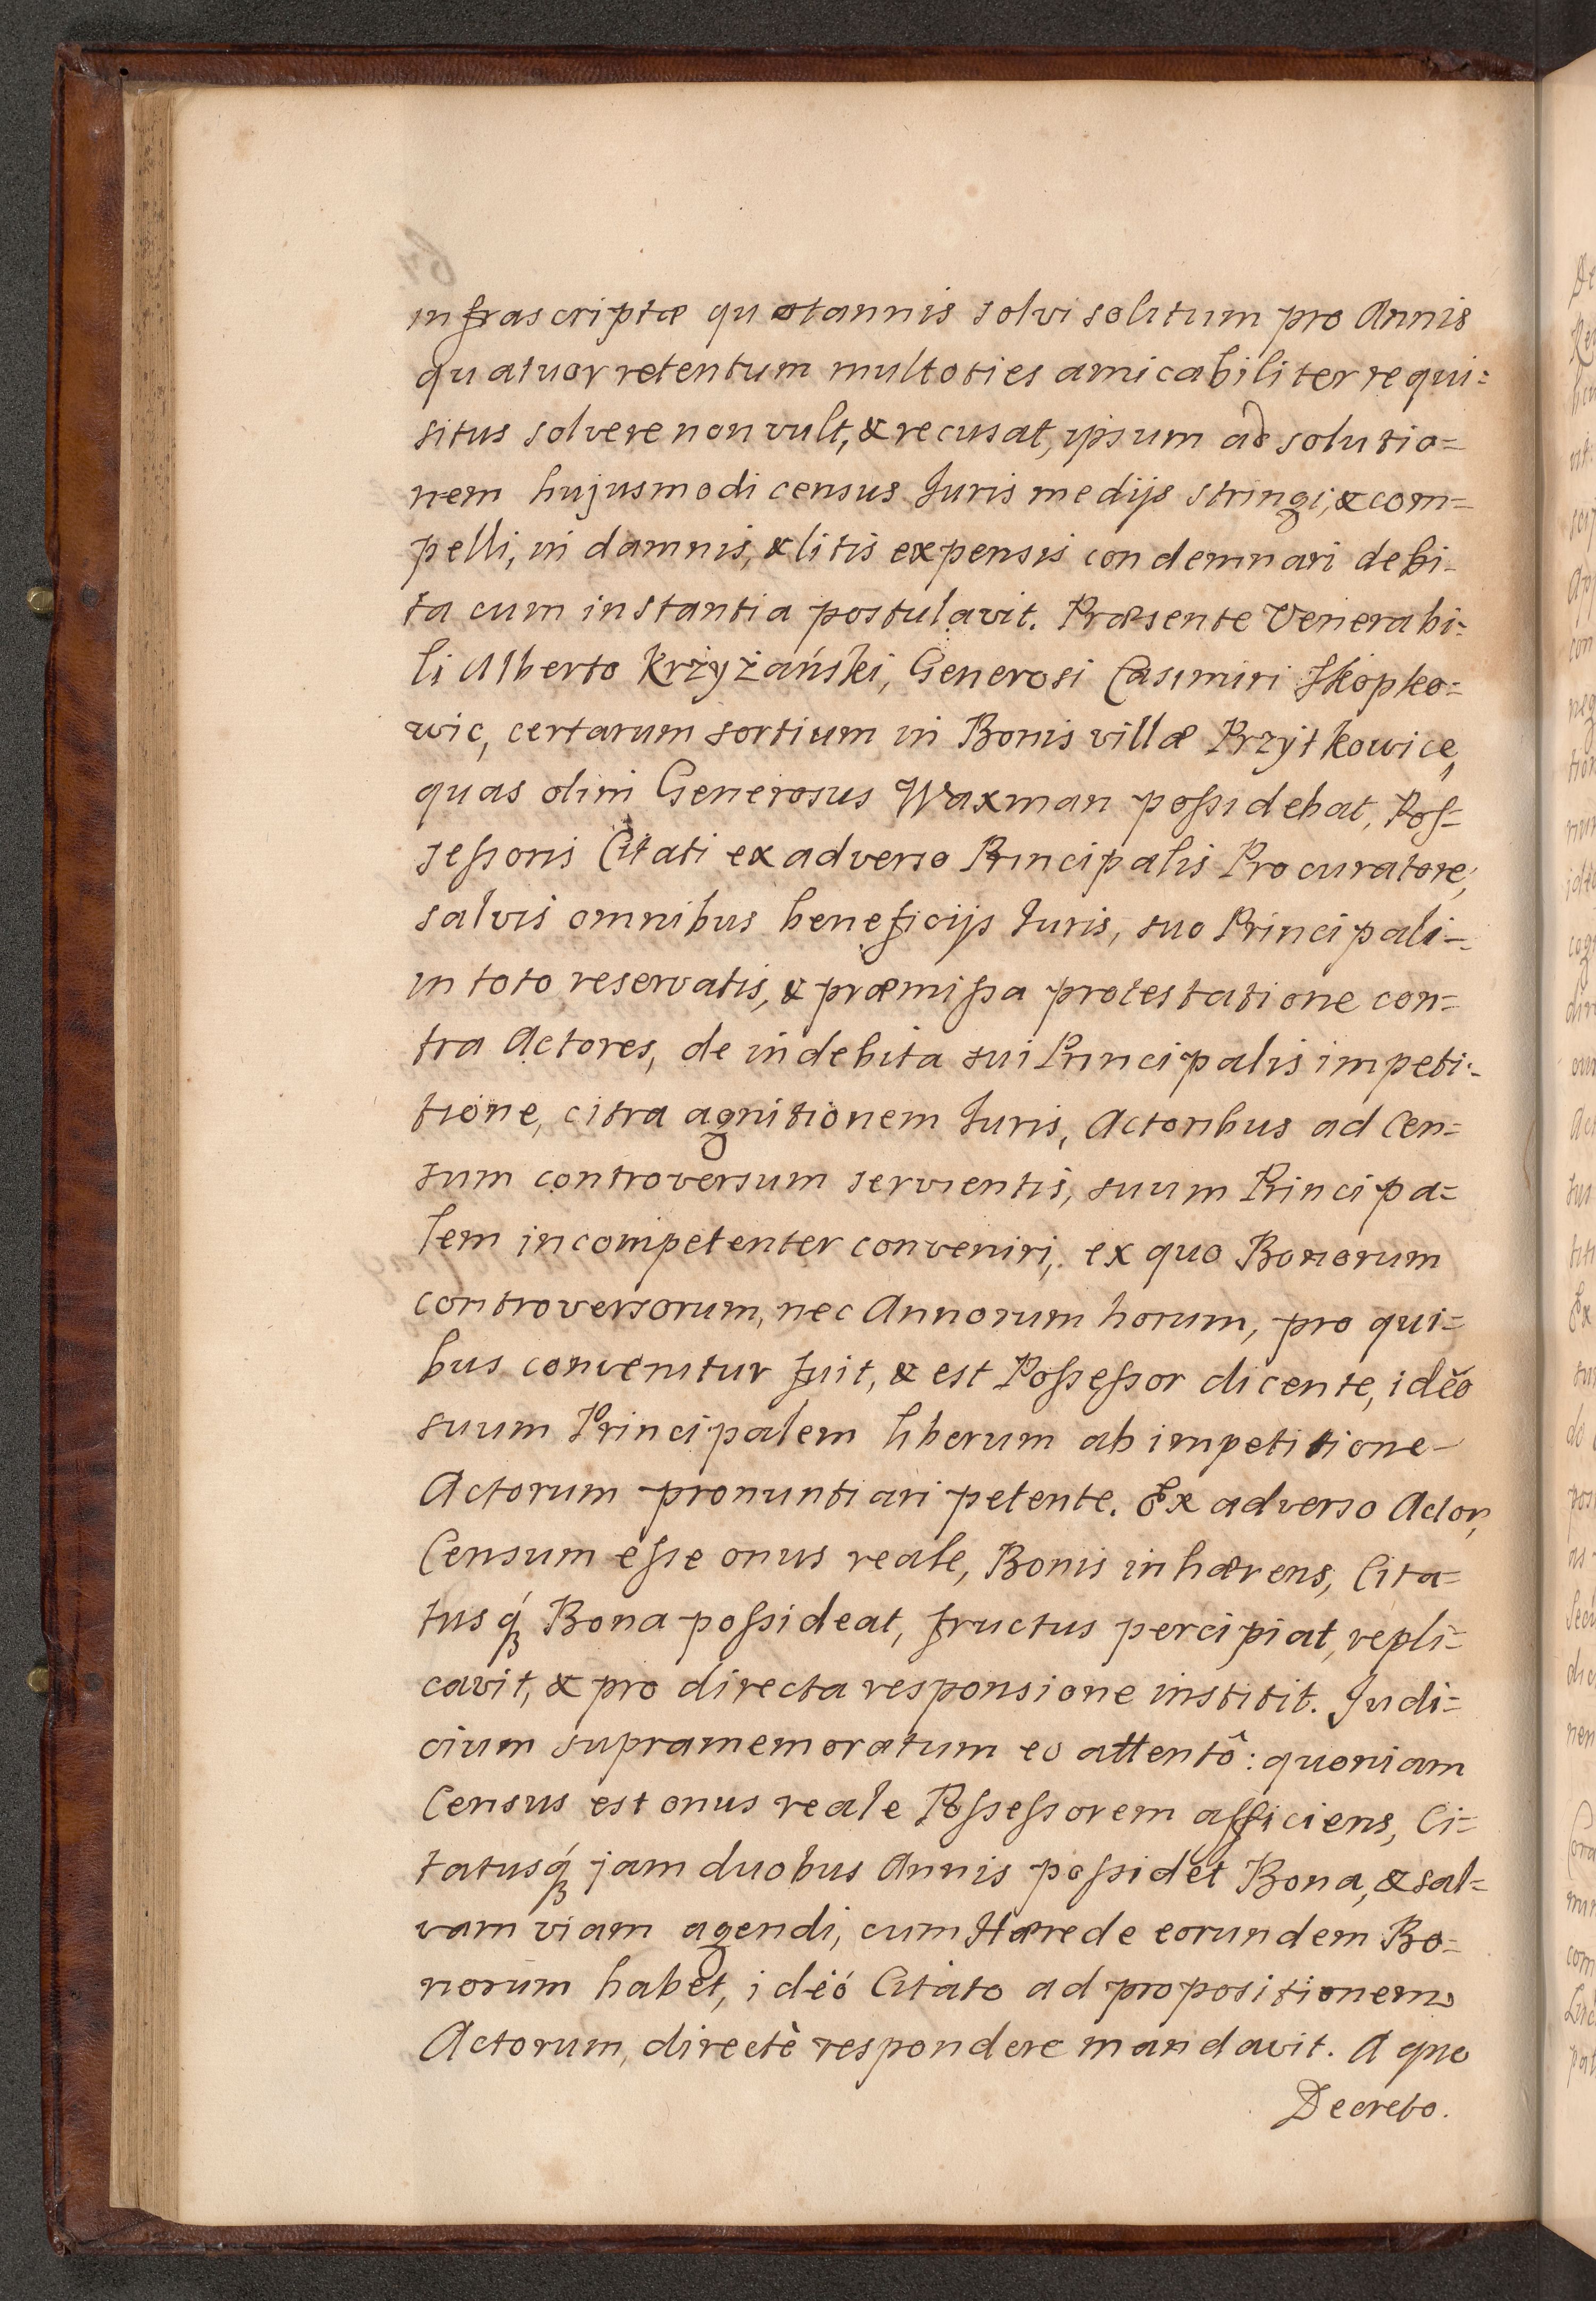 infrascriptæ quotannis solvi solitum pro Annis
quatuor retentum multoties amicabiliter requi=
situs solvere non vult, & recusat, ipsum ad solutio=
nem hujusmodi census Juris medijs stringi, & com=
pelli, in damnis, & litis expensis condemnari debi=
ta cum instantia postulavit. Præsente Venerabi=
li Alberto Krzyżański, Generosi Casimiri Skopko=
wic, certarum sortium in Bonis villæ Przytkowice,
quas olim Generosus Waxman possidebat, Pos=
sessoris Citati ex adverso Principalis Procuratore,
salvis omnibus beneficijs Juris, suo Principali
in toto reservatis, & præmissa protestatione con=
tra Actores, de indebita sui Principalis impeti=
tione, citra agnitionem Juris, Actoribus ad Cen=
sum controversum servientis, suum Principa=
lem incompetenter conveniri, ex quo Bonorum
controversorum, nec Annorum horum, pro qui=
bus convenitur fuit, & est Possessor dicente, ideo
suum Principalem liberum ab impetitione
Actorum pronuntiari petente. Ex adverso Actor,
Censum esse onus reale, Bonis inhærens, Cita=
tusq́ Bona possideat, fructus percipiat, repli=
cavit, & pro directa responsione institit. Judi=
cium supramemoratum eo attentô: quoniam
Census est onus reale Possessorem afficiens, Ci=
tatusq́ jam duobus Annis possidet Bona, & sal=
vam viam agendi, cum Hærede eorundem Bo=
norum habet, ideó Citato ad propositionem
Actorum, directè respondere mandavit. A quo
Decreto.